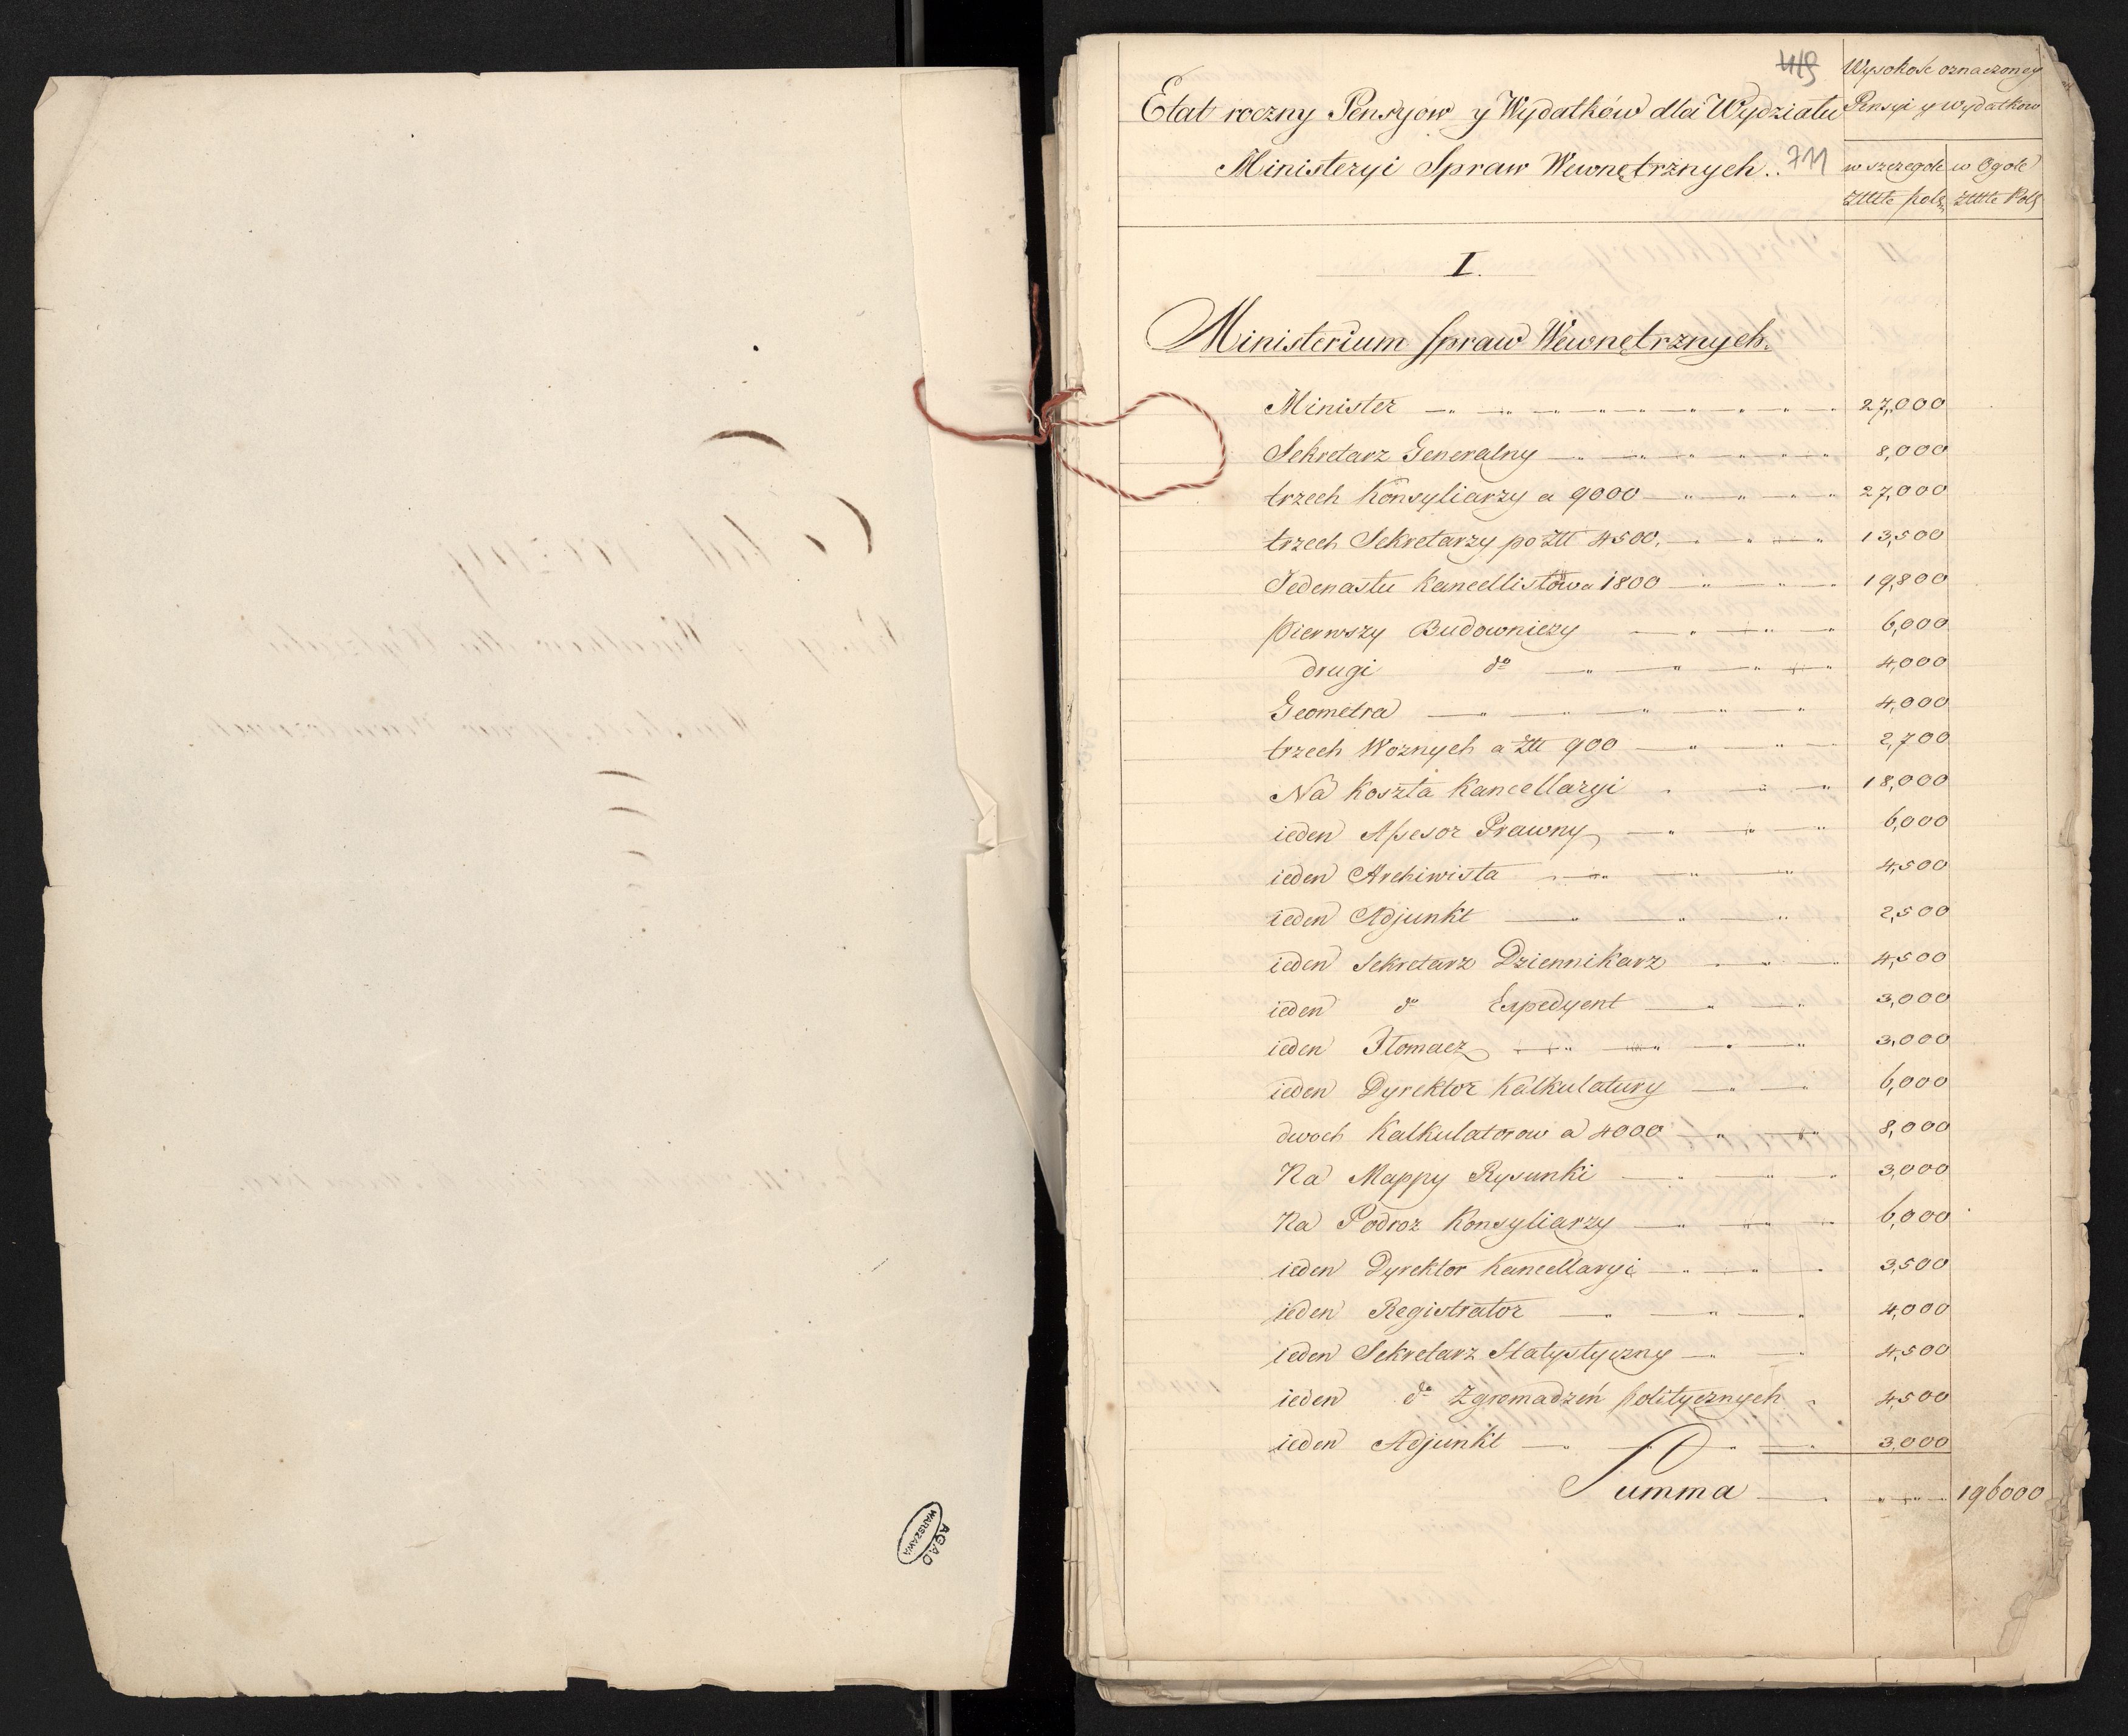 A.G.A.D
WARSZAWA
415
Wysokość oznaczoney
Etat roczny Pensyow y Wydatków dla Wydziału
Pensyi y wydatkow
Ministeryi Spraw Wewnętrznych.. 711
w szczegole w Ogole
Złłłte pols Złłte Pols
I.
Ministerium Spraw Wewnętrznych.
Minister 27,000
Sekretarz Generalny 8,000
trzech Konsyliarzy a 9000 27,000
trzech Sekretarzy po Złł 4500. 13,500
Jedenastu Kancellistow a 1800 19,800
pierwszy Budowniczy 6,000
drugi do 4,000
Geometra 4,000
trzech Woznych a Złł 900 2,700
Na Koszta Kancellaryi 18,000
ieden Assesor Prawny 6,000
ieden Archiwista 4,500
ieden Adjunkt 2,500
ieden Sekretarz Dziennikarz 4,500
ieden do Expedyent 3,000
ieden Tłomacz 3,000
ieden Dyrektor Kalkulatury 6,000
dwoch Kalkulatorow a 4000 8,000
Na Mappy Rysunki 3,000
Na Podroz Konsyliarzy 6,000
ieden Dyrektor Kancellaryi 3,500
ieden Registrator 4,000
ieden Sekretarz Statystyczny 4,500
ieden do Zgromadzeń politycznych 4,500
ieden Adjunkt 3,000
Summa 196000